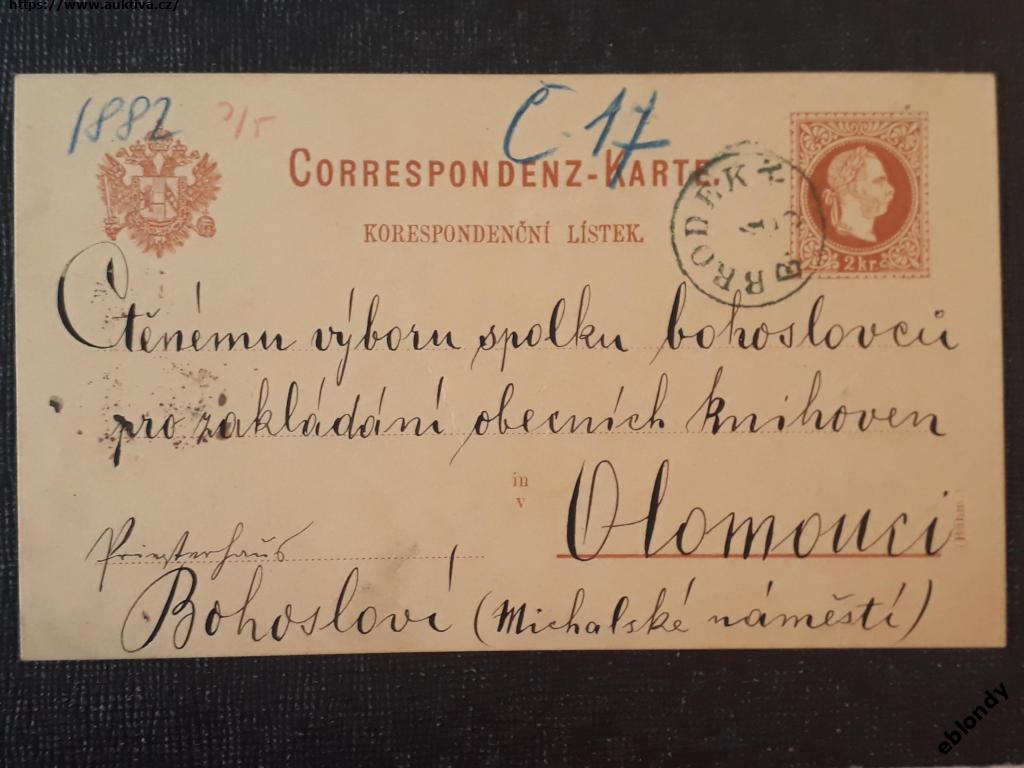 https://www.auktiva.cz/
1882
C 17
CORRESPONDENZ-KARTE.
KORESPONDENČNÍ LÍSTEK.
BRODEK
2 kr.
Ctěnému výboru spolku bohoslovců
pro zakládání obecních knihoven
in
v
Olomouci
(Böhm.)
Priesterhaus
Bohosloví (Michalské náměstí)
eblondy